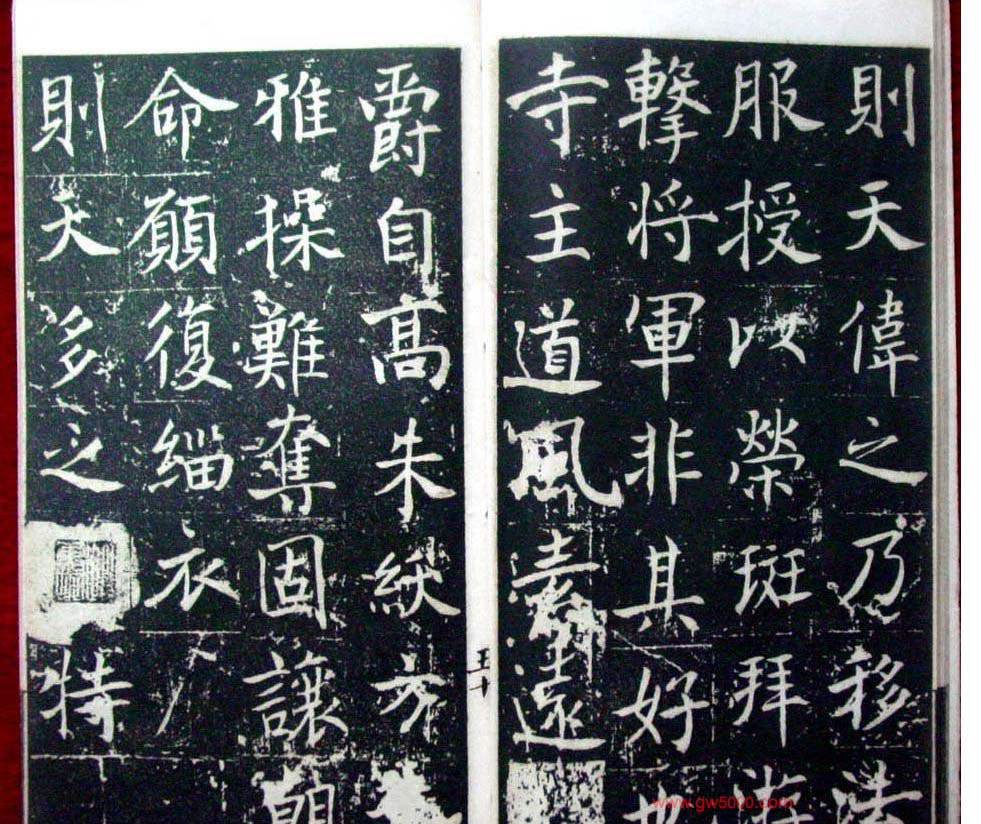 則天偉之乃移法
服授以榮斑拜游
擊将軍非其好也
寺主道風素遠
爵自髙朱紱方
雅操難奪固讓朝
命願復緇衣
則天多之特
五十
www.gw5020.com